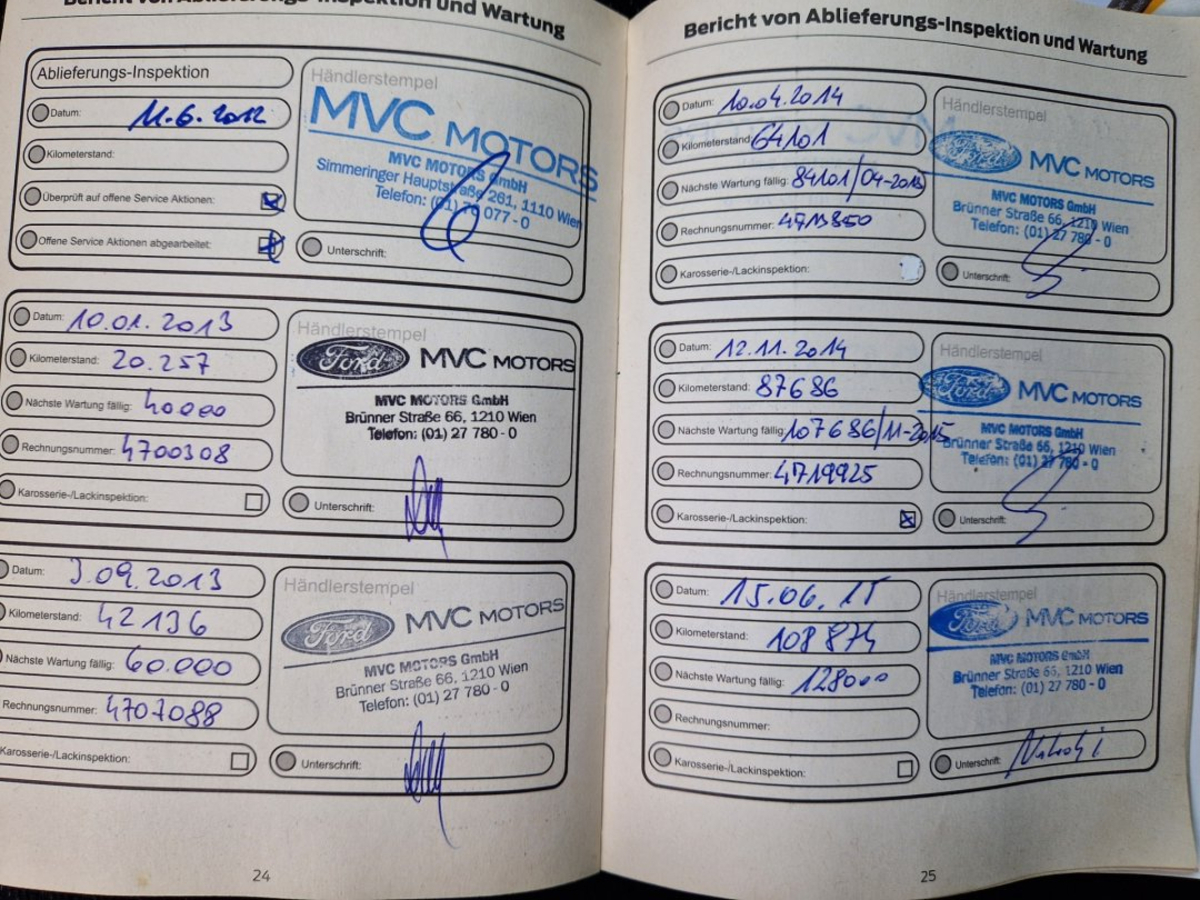 Bericht von Ablieferungs-Inspektion und Wartung
Ablieferungs-Inspektion
Datum: 11.6.2012
Kilometerstand:
Überprüft auf offene Service Aktionen:
Offene Service Aktionen abgearbeitet:
Händlerstempel
MVC MOTORS
MVC MOTORS GmbH
Simmeringer Hauptstraße 261, 1110 Wien
Telefon: (01) 70 077-0
Unterschrift:
Datum: 10.01.2013
Kilometerstand: 20.257
Nächste Wartung fällig: 40000
Rechnungsnummer: 4700308
Karosserie-/Lackinspektion:
Händlerstempel
Ford MVC MOTORS
MVC MOTORS GmbH
Brünner Straße 66, 1210 Wien
Telefon: (01) 27 780 - 0
Unterschrift:
Datum: 3.09.2013
Kilometerstand: 42136
Nächste Wartung fällig: 60.000
Rechnungsnummer: 4707088
Karosserie-/Lackinspektion:
Händlerstempel
Ford MVC MOTORS
MVC MOTORS GmbH
Brünner Straße 66, 1210 Wien
Telefon: (01) 27 780 - 0
Unterschrift:
24
Bericht von Ablieferungs-Inspektion und Wartung
Datum: 10.04.2014
Kilometerstand: 64101
Nächste Wartung fällig: 84101/04-2015
Rechnungsnummer:
Karosserie-/Lackinspektion:
Händlerstempel
Ford MVC MOTORS
MVC MOTORS GmbH
Brünner Straße 66, 1210 Wien
Telefon: (01) 27 780 - 0
Unterschrift:
Datum: 12.11.2014
Kilometerstand: 87686
Nächste Wartung fällig: 107686/11-2015
Rechnungsnummer: 4719925
Karosserie-/Lackinspektion:
Händlerstempel
Ford MVC MOTORS
MVC MOTORS GmbH
Brünner Straße 66, 1210 Wien
Telefon: (01) 27 780 - 0
Unterschrift:
Datum: 15.06.15
Kilometerstand: 108874
Nächste Wartung fällig: 128000
Rechnungsnummer:
Karosserie-/Lackinspektion:
Händlerstempel
Ford MVC MOTORS
MVC MOTORS GmbH
Brünner Straße 66, 1210 Wien
Telefon: (01) 27 780 - 0
Unterschrift:
25